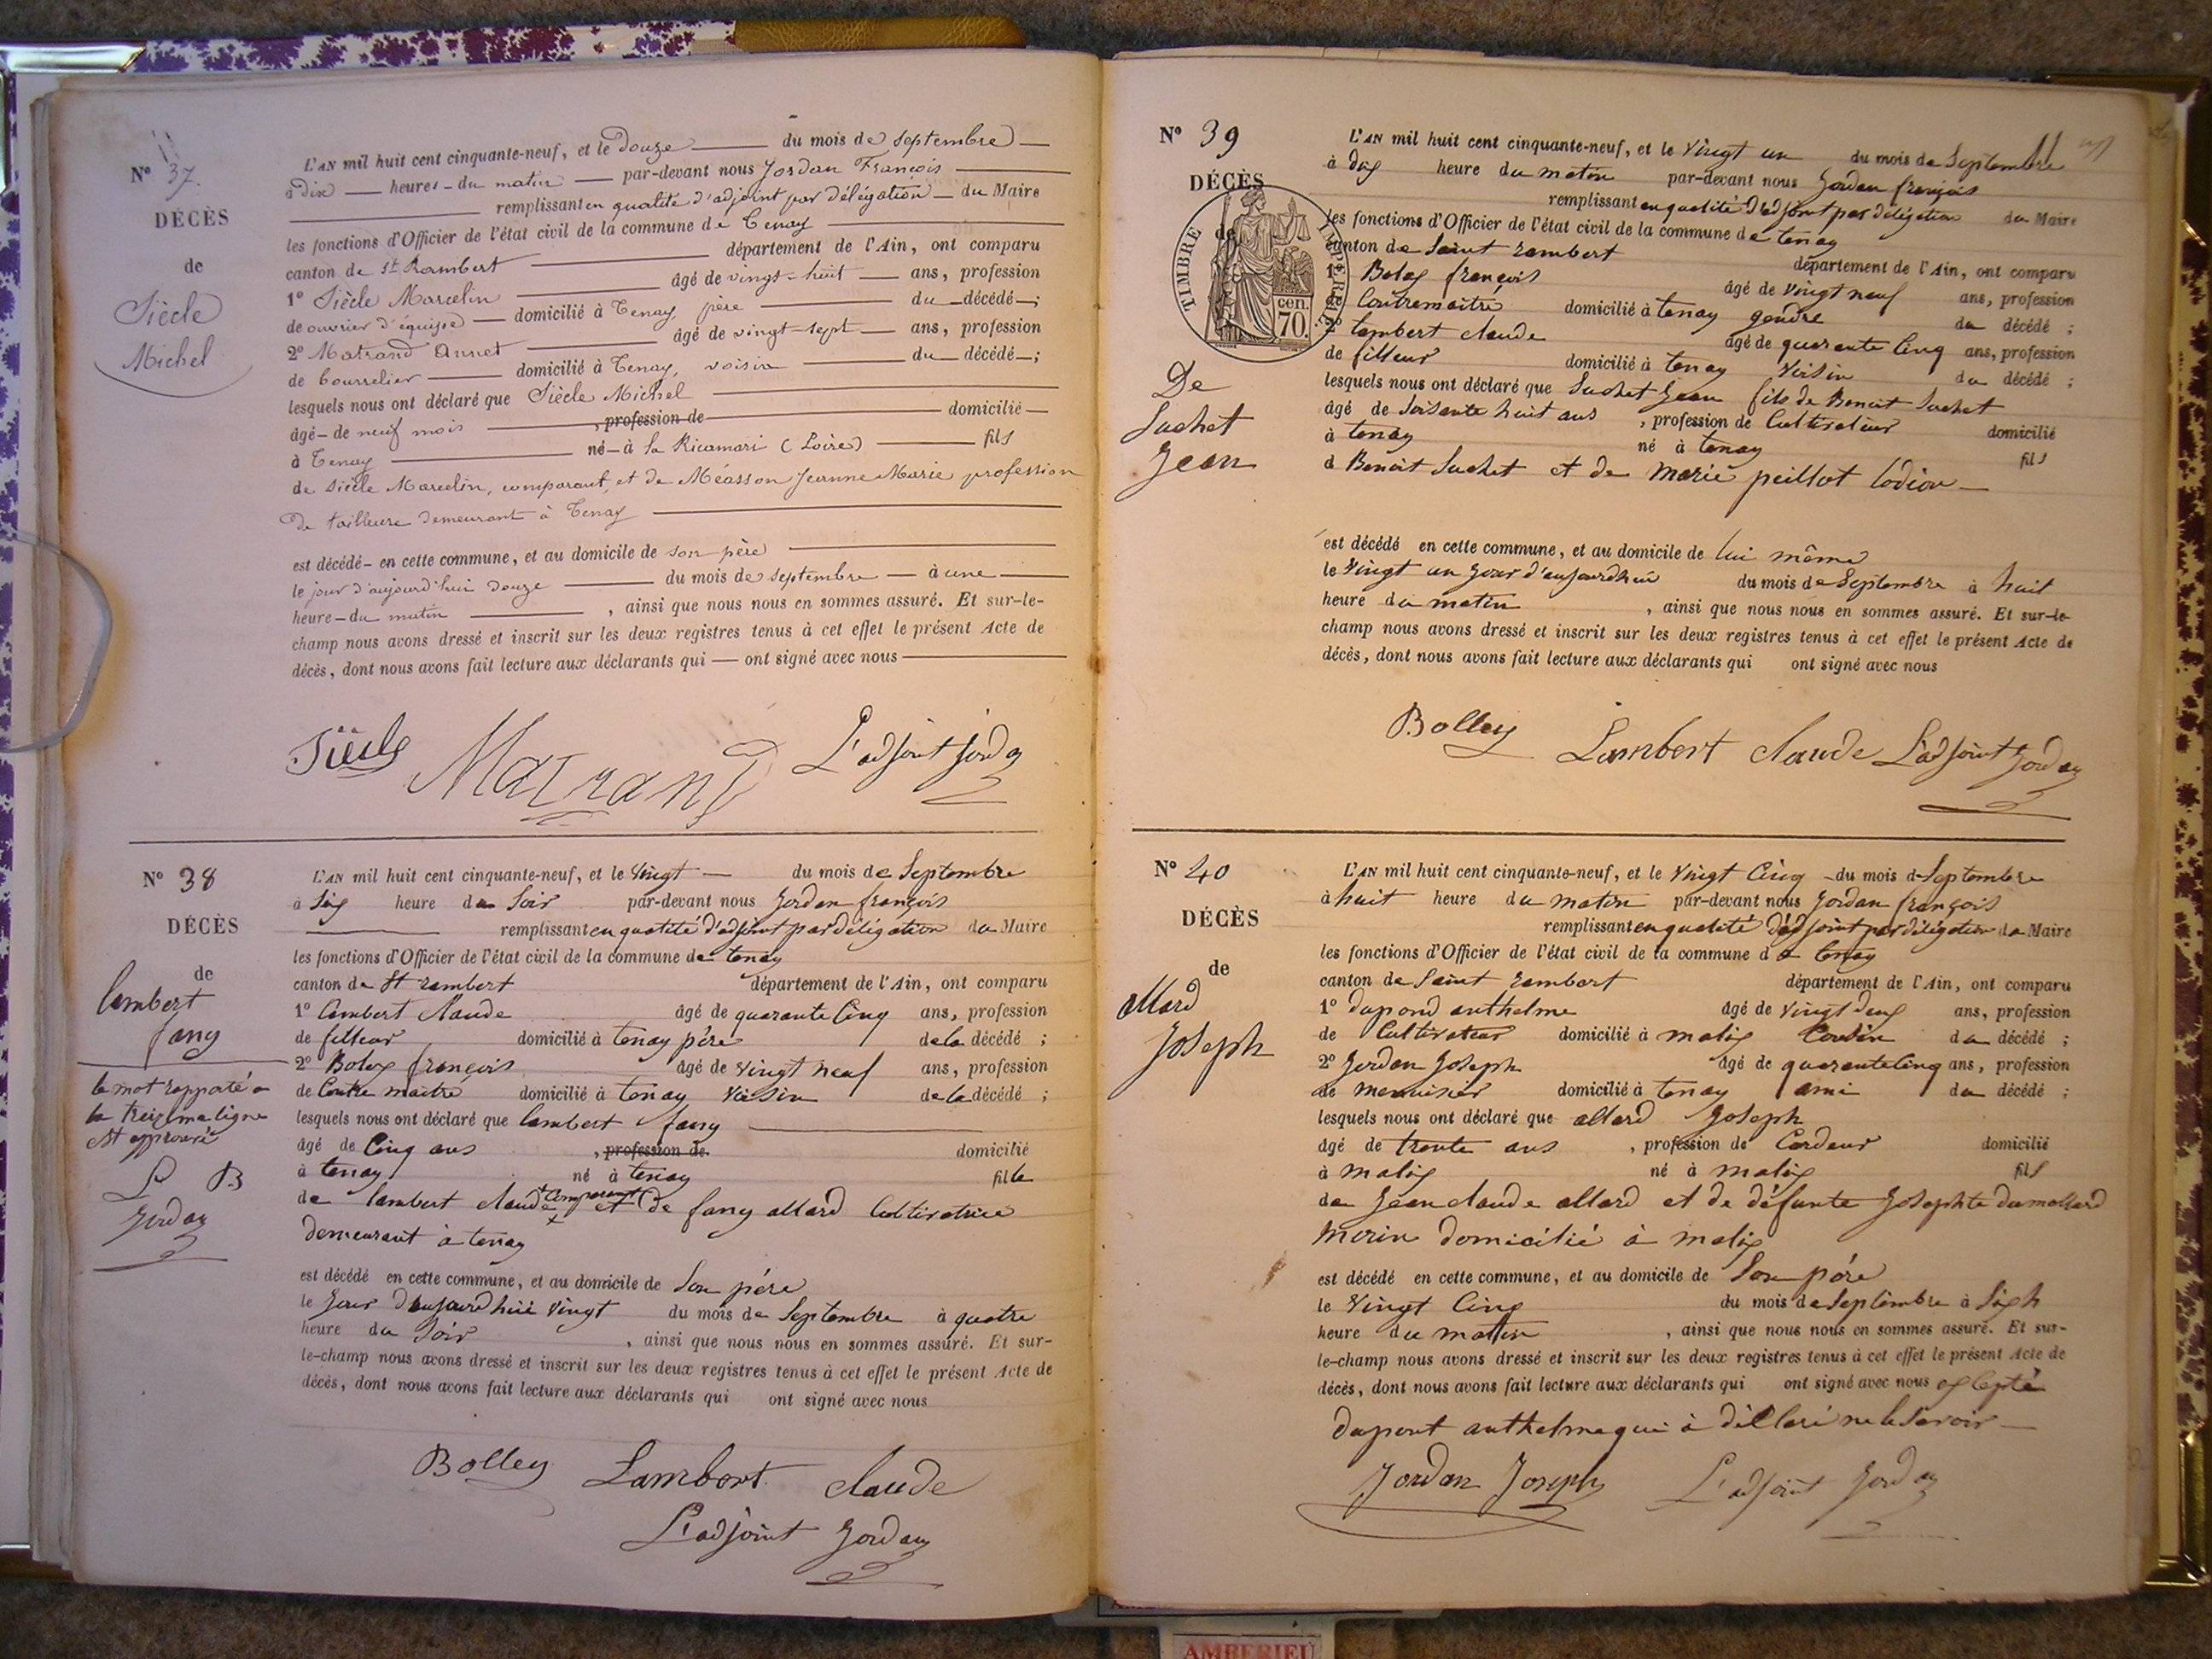 N° 37.
DÉCÈS
de
Siècle
Michel
L'AN mil huit cent cinquante-neuf, et le douze du mois de septembre
à dix heures du matin par-devant nous Jordan François
remplissant en qualité d'adjoint par délégation du Maire
les fonctions d'Officier de l'état civil de la commune de Tenay
canton de St Rambert département de l'Ain, ont comparu
1° Siècle Marcelin âgé de vingt-huit ans, profession
de ouvrier d'équipe domicilié à Tenay, père du décédé ;
2° Matrand Annet âgé de vingt-sept ans, profession
de bourrelier domicilié à Tenay, voisin du décédé ;
lesquels nous ont déclaré que Siècle Michel
âgé de neuf mois , profession de domicilié
à Tenay né à la Ricamari (Loire) fils
de Siècle Marcelin, comparant, et de Méasson Jeanne Marie profession
de tailleure demeurant à Tenay
est décédé en cette commune, et au domicile de son père
le jour d'aujourd'hui douze du mois de septembre à une
heure du matin , ainsi que nous nous en sommes assuré. Et sur-le-
champ nous avons dressé et inscrit sur les deux registres tenus à cet effet le présent Acte de
décès, dont nous avons fait lecture aux déclarants qui ont signé avec nous
Siècle Matrand L'adjoint Jordan
N° 38
DÉCÈS
de
lambert
fany
le mot rapporté a
la treizmaligne
est approuvé
L B
Jordan
L'AN mil huit cent cinquante-neuf, et le vingt du mois de Septembre
à Six heure du Soir par-devant nous Jordan françois
remplissant en qualité d'adjoint par délégation du Maire
les fonctions d'Officier de l'état civil de la commune de tenay
canton de St rambert département de l'Ain, ont comparu
1° Lambert Claude âgé de quarante Cinq ans, profession
de filleur domicilié à tenay père de la décédé ;
2° Boley françois âgé de vingt neuf ans, profession
de Contre maitre domicilié à tenay voisin de la décédé ;
lesquels nous ont déclaré que lambert fany
âgé de Cinq ans , profession de domicilié
à tenay né à tenay fille
de lambert claude comparant et de fany allard Cultivatrice
demeurant à tenay
est décédé en cette commune, et au domicile de Son père
le jour d'aujourd'hui vingt du mois de Septembre à quatre
heure du Soir , ainsi que nous nous en sommes assuré. Et sur-
le-champ nous avons dressé et inscrit sur les deux registres tenus à cet effet le présent Acte de
décès, dont nous avons fait lecture aux déclarants qui ont signé avec nous
Bolley Lambert claude
L'adjoint Jordan
N° 39
DÉCÈS
de
TIMBRE IMPÉRIAL
70 cen.
De
Suchet
Jean
L'AN mil huit cent cinquante-neuf, et le vingt un du mois de Septembre
à dix heure du matin par-devant nous Jordan françois
remplissant en qualité d'adjoint par délégation du Maire
les fonctions d'Officier de l'état civil de la commune de tenay
canton de Saint rambert département de l'Ain, ont comparu
1° Boley françois âgé de vingt neuf ans, profession
de Contremaitre domicilié à tenay gendre du décédé ;
2° lambert claude âgé de quarante Cinq ans, profession
de filleur domicilié à tenay voisin du décédé ;
lesquels nous ont déclaré que Suchet Jean fils de Benoit Suchet
âgé de soisante huit ans , profession de Cultivateur domicilié
à tenay né à tenay fils
d Benoit Suchet et de marie peillot lodion
est décédé en cette commune, et au domicile de lui même
le vingt un jour d'aujourd'hui du mois de Septembre à huit
heure du matin , ainsi que nous nous en sommes assuré. Et sur-le-
champ nous avons dressé et inscrit sur les deux registres tenus à cet effet le présent Acte de
décès, dont nous avons fait lecture aux déclarants qui ont signé avec nous
Bolley Lambert claude L'adjoint Jordan
N° 40
DÉCÈS
de
allard
Joseph
L'AN mil huit cent cinquante-neuf, et le vingt Cinq du mois d Septembre
à huit heure du matin par-devant nous Jordan françois
remplissant en qualité d'adjoint par délégation du Maire
les fonctions d'Officier de l'état civil de la commune de tenay
canton de Saint rambert département de l'Ain, ont comparu
1° dupond anthelme âgé de vingt deux ans, profession
de Cultivateur domicilié à malix Cousin du décédé ;
2° Jordan Joseph âgé de quarante Cinq ans, profession
de menuisier domicilié à tenay ami du décédé ;
lesquels nous ont déclaré que allard Joseph
âgé de trente ans , profession de Cardeur domicilié
à malix né à malix fils
de Jean claude allard et de défunte Josephte dumollard
morin domicilié à malix
est décédé en cette commune, et au domicile de Son père
le vingt Cinq du mois de Septembre à Sixh
heure du matin , ainsi que nous nous en sommes assuré. Et sur-
le-champ nous avons dressé et inscrit sur les deux registres tenus à cet effet le présent Acte de
décès, dont nous avons fait lecture aux déclarants qui ont signé avec nous exlepté
dupont anthelme qui à déclaré ne le savoir
Jordan Joseph L'adjoint Jordan
AMBERIEU